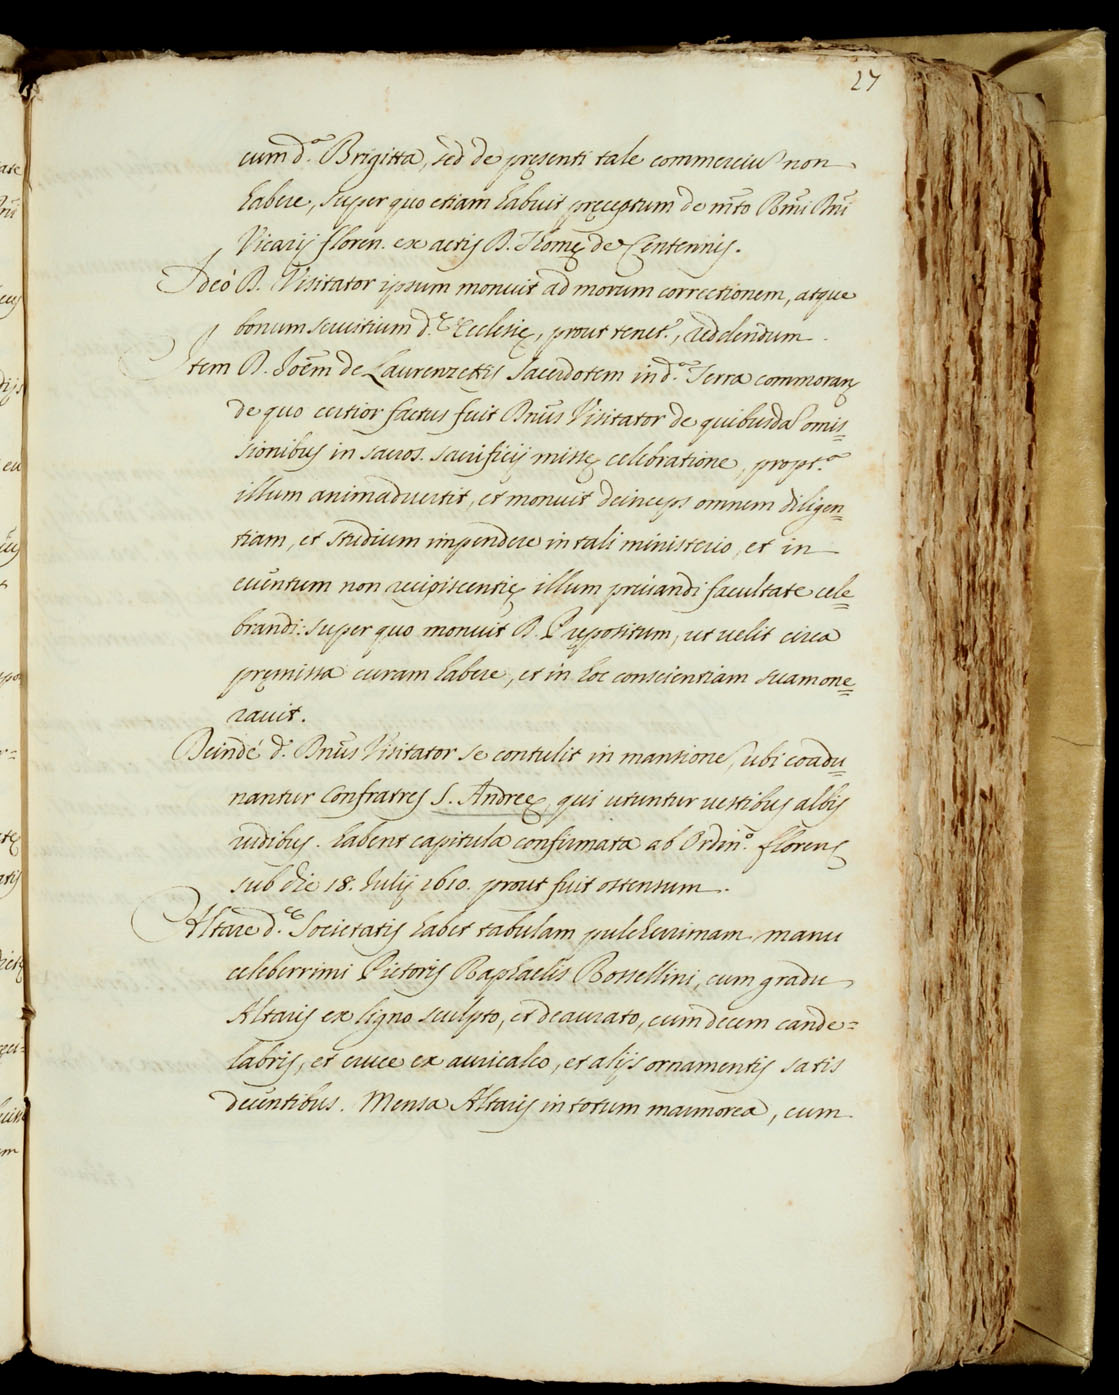 27
cum d.ª Brigitta, sed de pręsenti tale commerciũ non
habere, super quo etiam habuit pręceptum de m̃to R̃mi D̃ni
Vicarij floren. ex actis D. Thomę de Centennis.
Ideó D. Visitator ipsum monuit ad morum correctionem, atque
bonum seruitium d.ę Ecclesię, prout tenet.ʳ, reddendum.
Item D. Joẽm de Laurenzettis Sacerdotem in d.ª Terra commoran̨
de quo certior factus fuit D̃nus Visitator de quibusdã omis=
sionibus in sacros. sacrificij missę celebratione, propt.ª
illum animaduertit, et monuit deinceps omnem diligen=
tiam, et studium impendere in tali ministerio, et in
euentum non recipiscentię illum priuandi facultate cele=
brandi: super quo monuit D. Prępositum, ut uelit circa
pręmissa curam habere, et in hoc conscientiam suam one=
rauit.
Deindé d.ˢ D̃nus Visitator se contulit in mansione, ubi coadu=
nantur Confratres S. Andreę, qui utuntur uestibus albis
rudibus. habent capitula confirmata ab Ordin.º floren̨
sub die 18. Julij 1610. prout fuit ostensum.
Altare d.ę Societatis habet tabulam pulcherrimam manu
celeberrimi Pictoris Raphaelis Rossellini, cum gradu
Altaris ex ligno sculpto, et deaurato, cum decem cande=
labris, et cruce ex auricalco, et alijs ornamentis satis
decentibus. Mensa Altaris in totum marmorea, cum